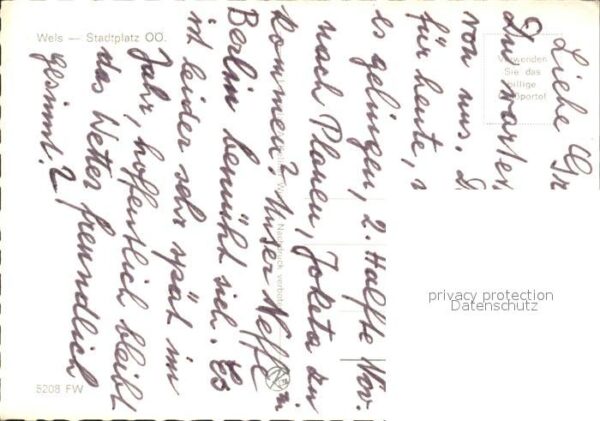 Wels — Stadtplatz OÖ.
Verwenden
Sie das
billige
Grußporto!
Liebe Gr
Du warte
von uns.
für heute,
es gelingen, 2. Hälfte Nov.
nach Plauen, Joketa zu
kommen? Unser Neffe in
Berlin bemüht sich. Es
ist leider sehr spät im
Jahr, hoffentlich bleibt
das Wetter freundlich
gesinnt.?
Nachdruck verboten
5208 FW
privacy protection
Datenschutz